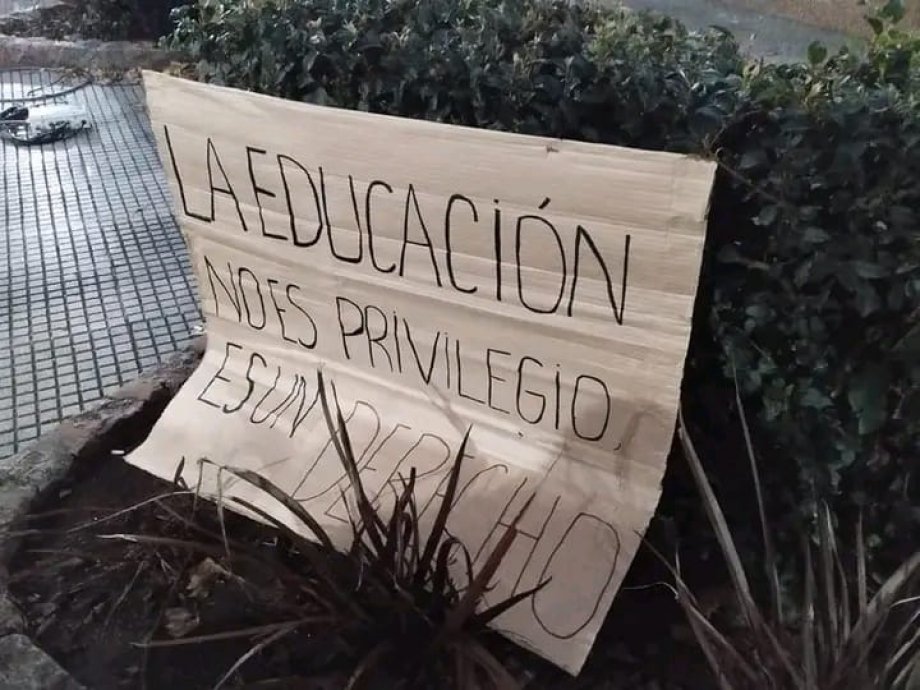 LA EDUCACIÓN
NO ES PRIVILEGIO,
ES UN DERECHO